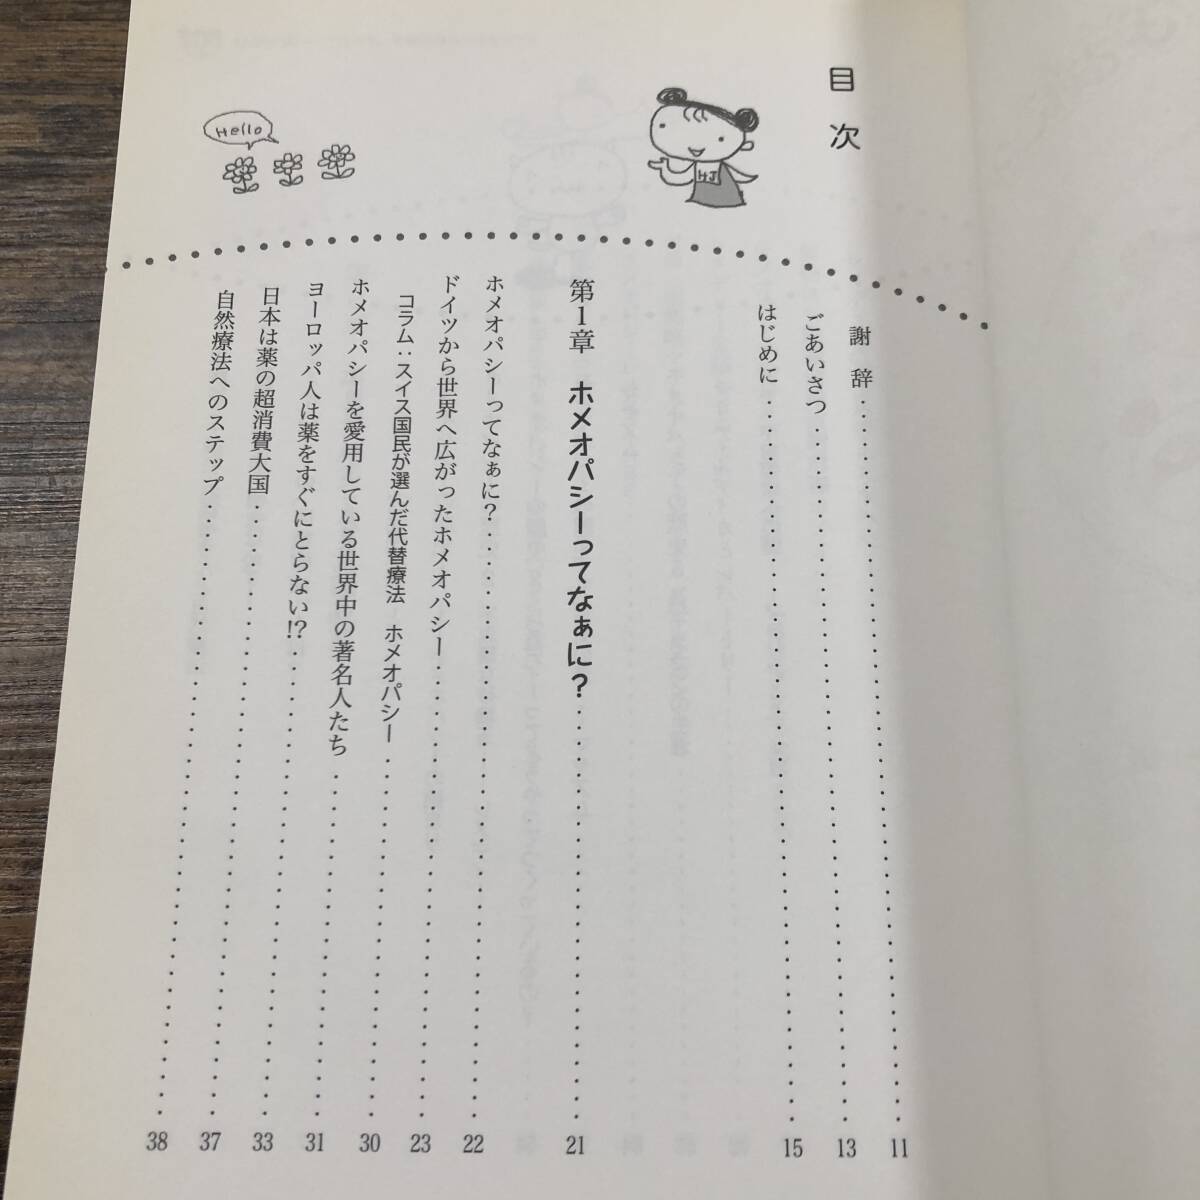 目次
Hello
HJ
謝辞 11
ごあいさつ 13
はじめに 15
第1章 ホメオパシーってなぁに? 21
ホメオパシーってなぁに? 22
ドイツから世界へ広がったホメオパシー 23
コラム:スイス国民が選んだ代替療法 ホメオパシー 30
ホメオパシーを愛用している世界中の著名人たち 31
ヨーロッパ人は薬をすぐにとらない!? 33
日本は薬の超消費大国 37
自然療法へのステップ 38